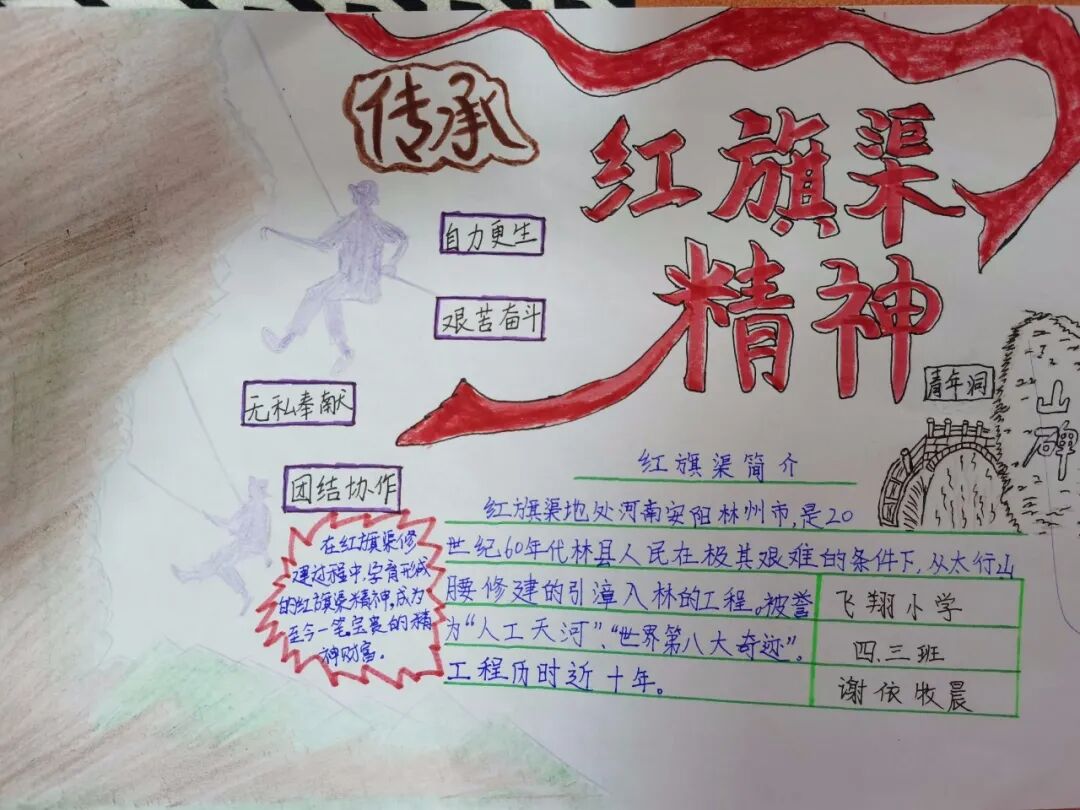 传承
红旗渠
精神
自力更生
艰苦奋斗
无私奉献
团结协作
青年洞
山
碑
红旗渠简介
红旗渠地处河南安阳林州市,是20
世纪60年代林县人民在极其艰难的条件下,从太行山
腰修建的引漳入林的工程。被誉
为“人工天河”、“世界第八大奇迹”。
工程历时近十年。
在红旗渠修
建过程中,孕育形成
的红旗渠精神,成为
至今一笔宝贵的精
神财富。
飞翔小学
四.三班
谢依牧晨